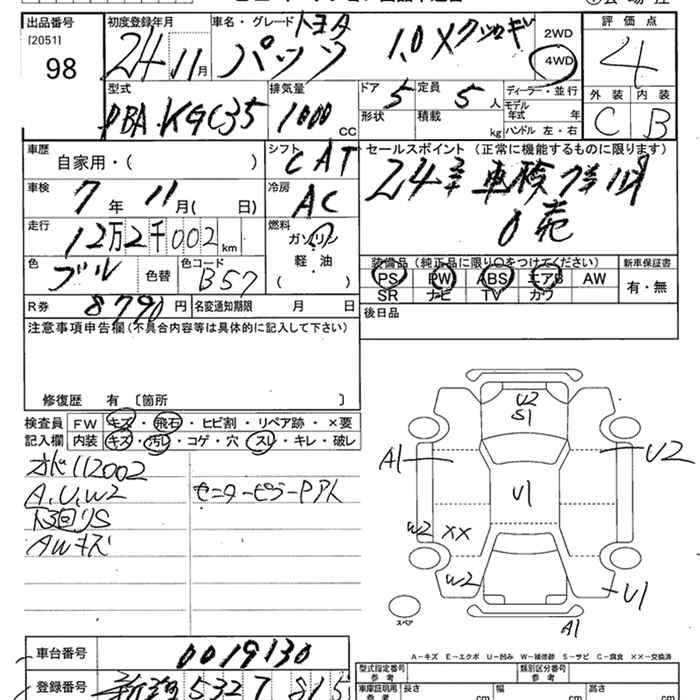 出品番号
[2051]
98
初度登録年月
24 11月
車名・グレード トヨタ
パッソ 1.0X クツロギ
2WD
4WD
評価点
4
外装 内装
C B
型式
DBA-KGC35
排気量
1000 CC
ドア 5
定員 5 人
形状
積載 kg
ディーラー・並行
モデル
年式 年
ハンドル 左・右
車歴
自家用・( )
シフト
CAT
車検
7年 11月( 日)
冷房
AC
走行
12万2千002km
燃料
ガソリン
軽・油
( )
色
ブル
色替
色コード
B57
R券 8790円
名変通知期限 月 日
セールスポイント (正常に機能するものに限ります)
24年 車検7年11月
装備品 (純正品に限り○をつけてください)
PS PW ABS エアB AW
SR ナビ TV カワ
新車保証書
有・無
後日品
注意事項申告欄(不具合内容等は具体的に記入して下さい)
修復歴 有 〔箇所 〕
検査員
記入欄
FW キズ・飛石・ヒビ割・リペア跡・×要
内装 キズ・汚レ・コゲ・穴・スレ・キレ・破レ
A,U,W2
AWキズ
センターピラーPアト
U2
S1
A1
U2
U1
W2
XX
W2
U1
A1
スペア
A-キズ E-エクボ U-凹み W-補修跡 S-サビ C-腐食 ××-交換済
車台番号
0019130
登録番号
5327
型式指定番号
参考
類別区分番号
参考
車庫証明用
参考
長さ cm
幅 cm
高さ cm